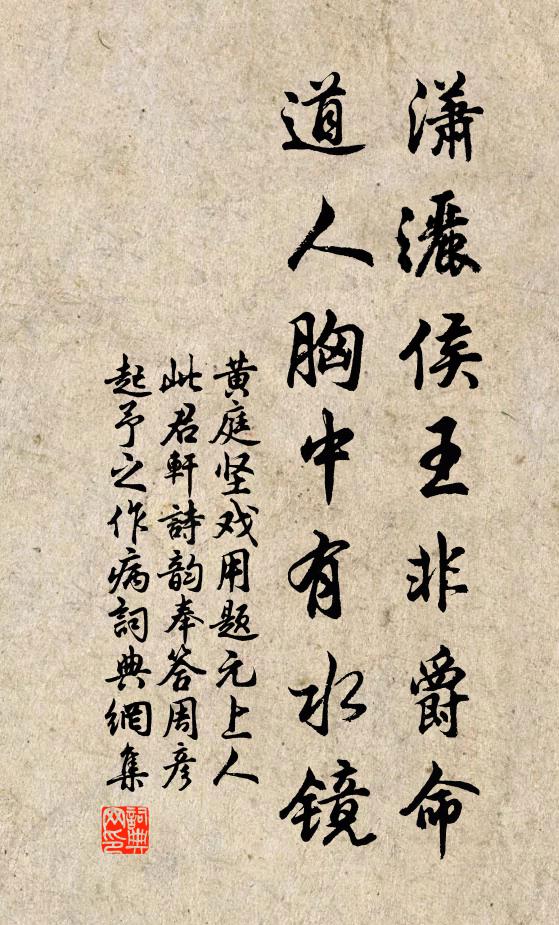 瀟灑侯王非爵命
道人胸中有水镜
黄庭坚戏用題元上人
此君軒詩韵奉答周彦
起予之作病詞典網集
詞典网印